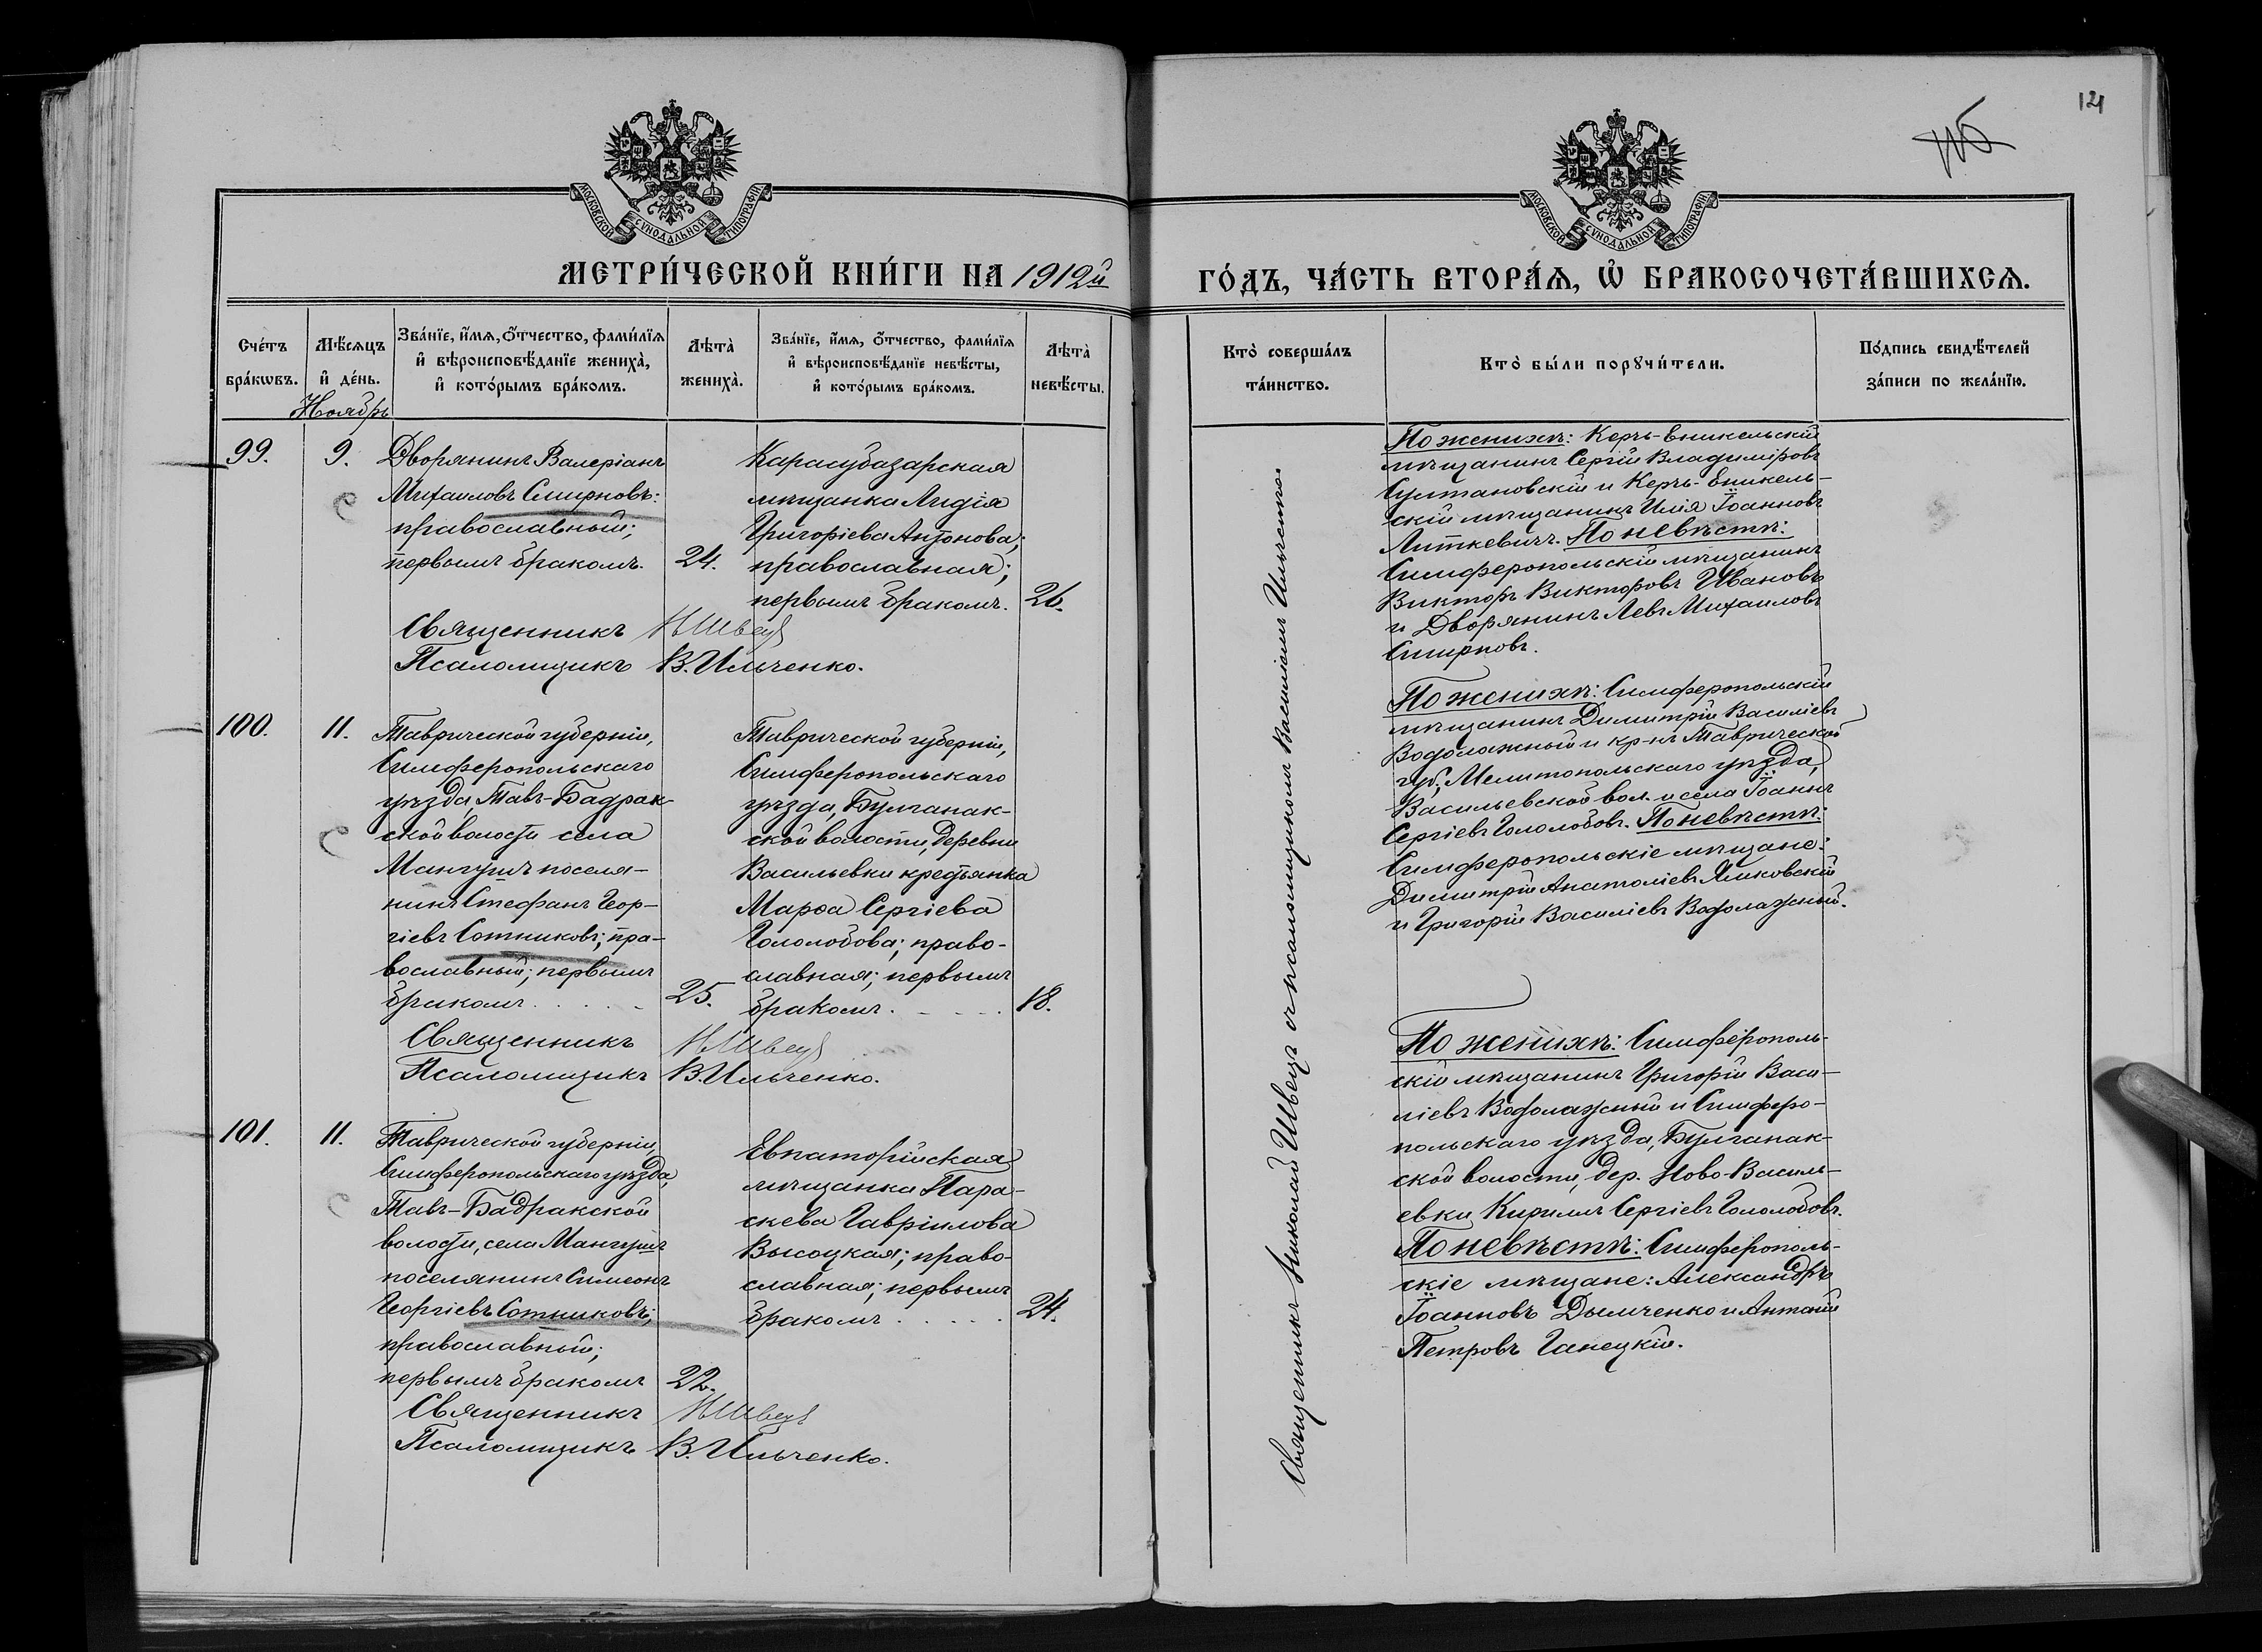 121
МОСКОВСКОЙ СѴНОДАЛЬНОЙ ТИПОГРАФІИ
МОСКОВСКОЙ СѴНОДАЛЬНОЙ ТИПОГРАФІИ
МЕТРИ́ЧЕСКОЙ КНИ́ГИ НА 1912й
ГО́ДЪ, ЧА́СТЬ ВТОРА́Ѧ, Ѡ҆ БРАКОСОЧЕТА́ВШИХСѦ.
Сче́тъ
бра́кѡвъ.
Мѣ́сяцъ
и҆ де́нь.
Ноябрь
Зва́нїе, и҆́мѧ, ѻ҆́тчество, фами́лїѧ
и҆ вѣроисповѣ́данїе жениха̀,
и҆ кото́рымъ бра́комъ.
Лѣта̀
жениха̀.
Зва́нїе, и҆́мѧ, ѻ҆́тчество, фами́лїѧ
и҆ вѣроисповѣ́данїе невѣ́сты,
и҆ кото́рымъ бра́комъ.
Лѣта̀
невѣ́сты.
Кто̀ соверша́лъ
та́инство.
Кто̀ бы́ли порꙋчи́тели.
По́дпись свидѣ́телей
за́писи по жела́нїю.
99.
9.
Дворянинъ Валеріанъ
Михаиловъ Смирновъ:
православный;
первымъ бракомъ.
24.
Карасубазарская
мѣщанка Лидія
Григоріева Антонова;
православная;
первымъ бракомъ.
26.
Священникъ НШвец
Псаломщикъ В. Ильченко.
По женихѣ: Керчь-Еникельскій
мѣщанинъ Сергій Владиміровъ
Султановскій и Керчь-Еникель-
скій мѣщанинъ Илія Іоанновъ
Литкевичъ. По невѣстѣ:
Симферопольскій мѣщанинъ
Викторъ Викторовъ Ивановъ
и Дворянинъ Левъ Михаиловъ
Смирновъ.
100.
11.
Таврической губерніи,
Симферопольскаго
уѣзда, Тавъ-Бадрак-
ской волости села
Мангушъ поселя-
нинъ Стефанъ Геор-
гіевъ Сотниковъ; пра-
вославный; первымъ
бракомъ.
25.
Таврической губерніи,
Симферопольскаго
уѣзда, Булганак-
ской волости, деревни
Васильевки крестьянка
Марѳа Сергіева
Гололобова; право-
славная; первымъ
бракомъ.
18.
Священникъ НШвец
Псаломщикъ В. Ильченко.
По женихѣ: Симферопольскій
мѣщанинъ Димитрій Василіевъ
Водолажный и кр-нъ Таврической
губ., Мелитопольскаго уѣзда,
Васильевской вол. и села Іоаннъ
Сергіевъ Гололобовъ. По невѣстѣ:
Симферопольскіе мѣщане:
Димитрій Анатоліевъ Ямковскій
и Григорій Василіевъ Водолажный.
101.
11.
Таврической губерніи,
Симферопольскаго уѣзда,
Тавъ-Бадракской
волости, села Мангушъ
поселянинъ Симеонъ
Георгіевъ Сотниковъ;
православный;
первымъ бракомъ
22.
Евпаторійская
мѣщанка Пара-
скева Гавріилова
Высоцкая; право-
славная; первымъ
бракомъ
24.
Священникъ НШвец
Псаломщикъ В. Ильченко.
По женихѣ: Симферополь-
скій мѣщанинъ Григорій Васи-
ліевъ Водолажный и Симферо-
польскаго уѣзда, Булганак-
ской волости, дер. Ново-Василь-
евки Кириллъ Сергіевъ Гололобовъ.
По невѣстѣ: Симферополь-
скіе мѣщане: Александръ
Іоанновъ Дымченко и Антоній
Петровъ Ганецкій.
Священникъ Николай Швецъ съ псаломщикомъ Василіемъ Ильченко.